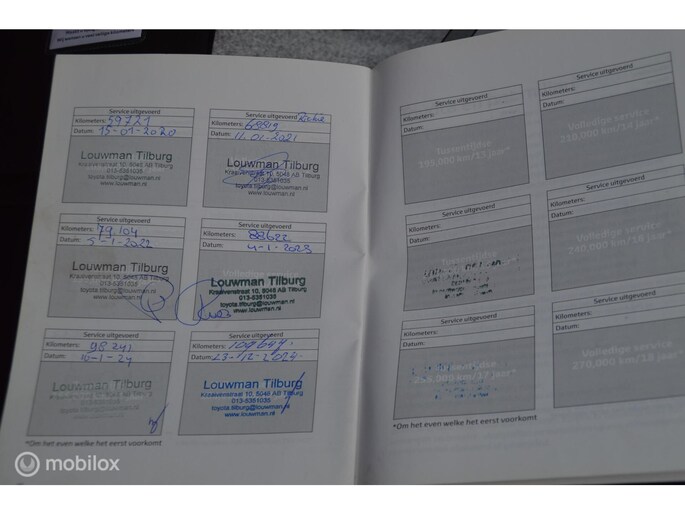 Service uitgevoerd
Kilometers: 59721
Datum: 15-01-2020
Louwman Tilburg
Kraaivenstraat 10, 5048 AB Tilburg
013-5351035
toyota.tilburg@louwman.nl
www.louwman.nl
Service uitgevoerd
Kilometers:
Datum: 11-01-2021
Louwman Tilburg
Kraaivenstraat 10, 5048 AB Tilburg
013-5351035
toyota.tilburg@louwman.nl
www.louwman.nl
Service uitgevoerd
Kilometers: 79.104
Datum: 5-1-2022
Louwman Tilburg
Kraaivenstraat 10, 5048 AB Tilburg
013-5351035
toyota.tilburg@louwman.nl
www.louwman.nl
Service uitgevoerd
Kilometers: 88622
Datum: 4-1-2023
Louwman Tilburg
Kraaivenstraat 10, 5048 AB Tilburg
013-5351035
toyota.tilburg@louwman.nl
www.louwman.nl
Service uitgevoerd
Kilometers: 98241
Datum: 10-1-24
Louwman Tilburg
Kraaivenstraat 10, 5048 AB Tilburg
013-5351035
toyota.tilburg@louwman.nl
www.louwman.nl
Service uitgevoerd
Kilometers: 109647
Datum: 23-12-2024
Louwman Tilburg
Kraaivenstraat 10, 5048 AB Tilburg
013-5351035
toyota.tilburg@louwman.nl
www.louwman.nl
*Om het even welke het eerst voorkomt
Service uitgevoerd
Kilometers:
Datum:
Tussentijdse
195.000 km/13 jaar*
Service uitgevoerd
Kilometers:
Datum:
Volledige service
210.000 km/14 jaar*
Service uitgevoerd
Kilometers:
Datum:
Service uitgevoerd
Kilometers:
Datum:
Volledige service
240.000 km/16 jaar*
Service uitgevoerd
Kilometers:
Datum:
255.000 km/17 jaar*
Service uitgevoerd
Kilometers:
Datum:
Volledige service
270.000 km/18 jaar*
*Om het even welke het eerst voorkomt
mobilox